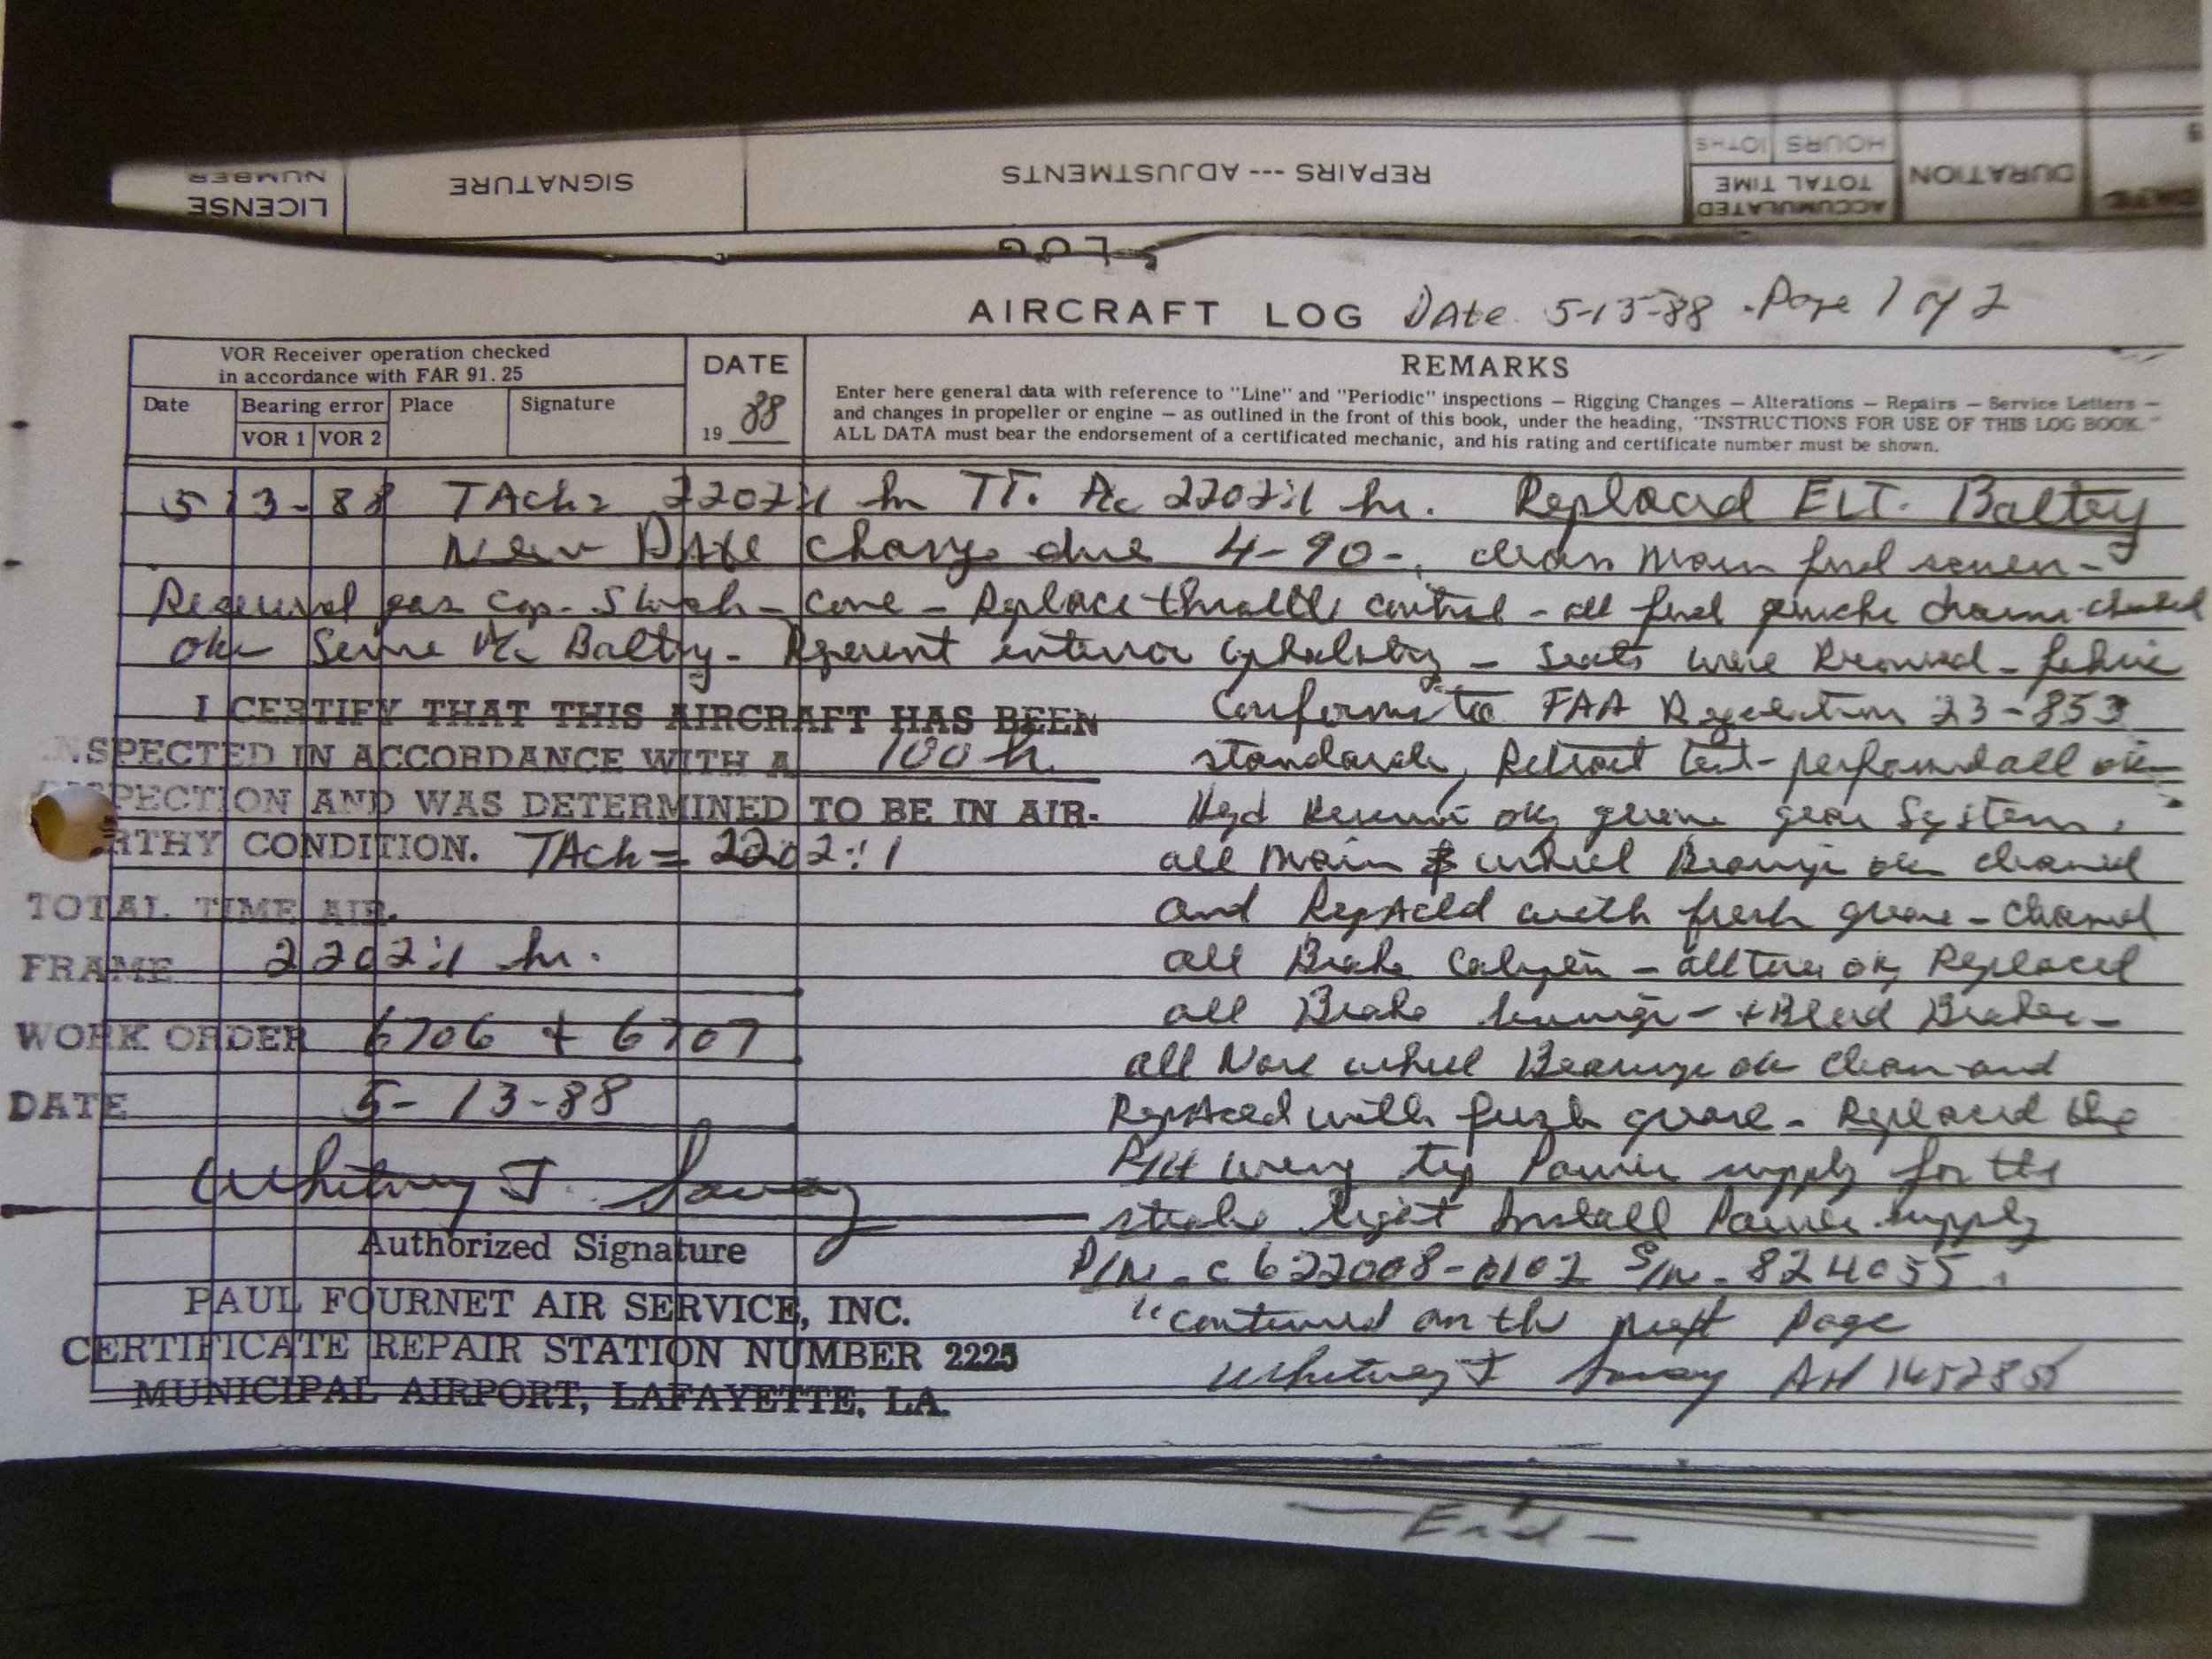 LICENSE NUMBER
SIGNATURE
REPAIRS --- ADJUSTMENTS
ACCUMULATED TOTAL TIME
HOURS 10THS
DURATION
DATE
LOG
AIRCRAFT LOG Date 5-13-88 - Page 1 of 2
VOR Receiver operation checked
in accordance with FAR 91.25
Date
Bearing error
VOR 1 VOR 2
Place
Signature
DATE
19 88
REMARKS
Enter here general data with reference to "Line" and "Periodic" inspections — Rigging Changes — Alterations — Repairs — Service Letters —
and changes in propeller or engine — as outlined in the front of this book, under the heading, "INSTRUCTIONS FOR USE OF THIS LOG BOOK."
ALL DATA must bear the endorsement of a certificated mechanic, and his rating and certificate number must be shown.
5-13-88 TAch= 2202:1 hr TT. A/c 2202:1 hr. Replaced ELT. Battery
New Date Change due 4-90-, clean main fuel screen-
gas cap - Replace throttle control - all fuel
ok Battery - interior - Seats were Removed - fabric
I CERTIFY THAT THIS AIRCRAFT HAS BEEN
INSPECTED IN ACCORDANCE WITH A 100 h
INSPECTION AND WAS DETERMINED TO BE IN AIR-
WORTHY CONDITION. TAch = 2202:1
TOTAL TIME AIR-
FRAME 2202:1 hr.
WORK ORDER 6706 + 6707
DATE 5-13-88
Whitney J.
Authorized Signature
PAUL FOURNET AIR SERVICE, INC.
CERTIFICATE REPAIR STATION NUMBER 2225
MUNICIPAL AIRPORT, LAFAYETTE, LA.
Conforms to FAA Regulation 23-853
standards, Retract test - performed all ok
Hyd ok gear System.
all main wheel Bearings ok cleaned
and RepAcked with fresh grease - cleaned
all Brake - all tires ok Replaced
all Brake linings - + Bleed Brakes -
all Nose wheel Bearings ok Clean and
RepAcked with fresh grease - Replaced the
R/H wing tip Power supply for the
strobe light Install Power supply
P/N - C622008-0102 S/N - 824055.
"continued on the next Page
Whitney J
- End -